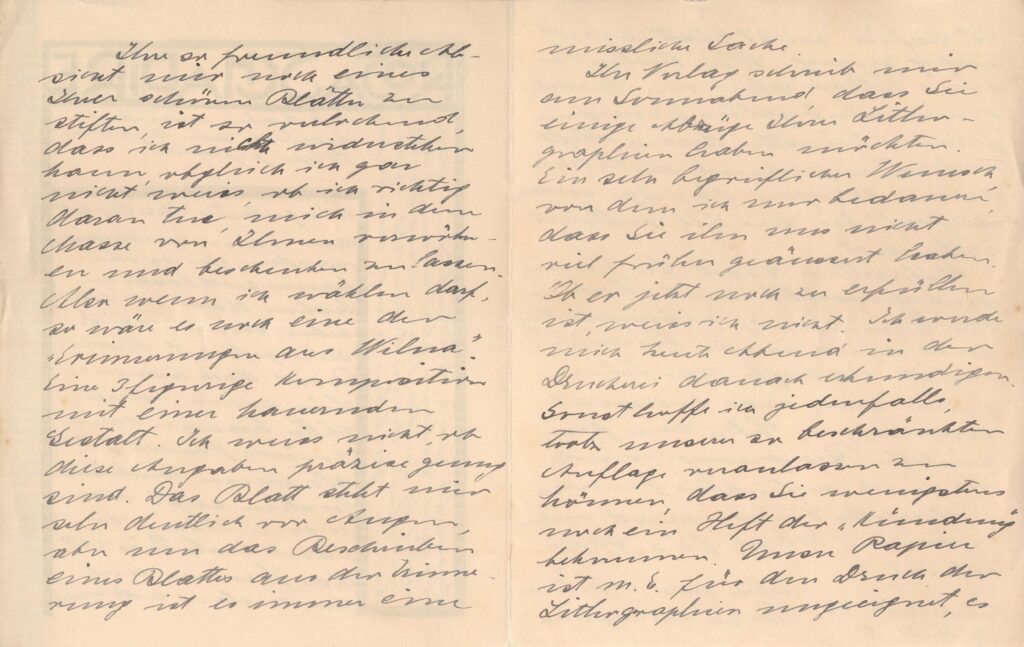 Ihre so freundliche Ab-
sicht mir noch eines
Ihrer schönen Blätter zu
stiften, ist so verlockend,
dass ich nicht widerstehen
kann, obgleich ich gar
nicht weiss, ob ich richtig
daran tue, mich in dem
Masse von Ihnen verwöhn-
en und beschenken zu lassen.
Also wenn ich wählen darf,
so wäre es noch eine der
„Erinnerungen aus Wilna".
Eine 3figurige Komposition
mit einer kauernden
Gestalt. Ich weiss nicht, ob
diese Angaben präzise genug
sind. Das Blatt steht mir
sehr deutlich vor Augen,
aber um das Beschreiben
eines Blattes aus der Erinne-
rung ist es immer eine
missliche Sache.
Ihr Verlag schrieb mir
am Sonnabend, dass Sie
einige Abzüge Ihrer Litho-
graphien haben möchten.
Ein sehr begreiflicher Wunsch,
von dem ich nur bedaure,
dass Sie ihn uns nicht
viel früher geäussert haben.
Ob er jetzt noch zu erfüllen
ist, weiss ich nicht. Ich werde
mich heute Abend in der
Druckerei danach erkundigen.
Sonst hoffe ich jedenfalls,
trotz unserer so beschränkten
Auflage veranlassen zu
können, dass Sie wenigstens
noch ein Heft der „Kündung"
bekommen. Unser Papier
ist m. E. für den Druck der
Lithographien ungeeignet, es